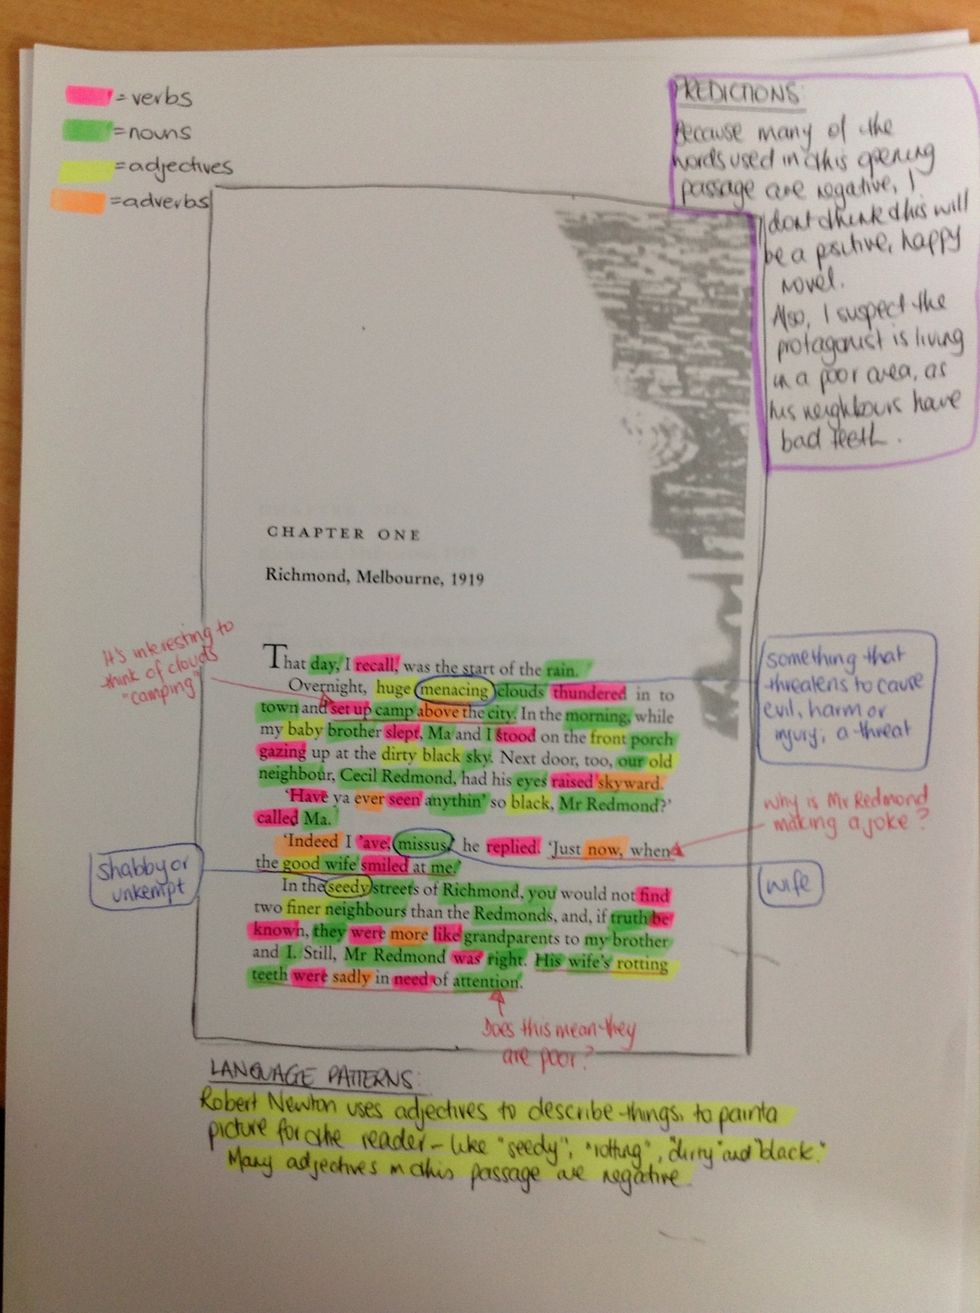 = verbs
= nouns
= adjectives
= adverbs
PREDICTIONS:
Because many of the
words used in this opening
passage are negative, I
dont think this will
be a positive, happy
novel.
Also, I suspect the
protagonist is living
in a poor area, as
his neighbours have
bad teeth.
CHAPTER ONE
Richmond, Melbourne, 1919
It's interesting to
think of clouds
"camping"
That day, I recall, was the start of the rain.
Overnight, huge menacing clouds thundered in to
town and set up camp above the city. In the morning, while
my baby brother slept, Ma and I stood on the front porch
gazing up at the dirty black sky. Next door, too, our old
neighbour, Cecil Redmond, had his eyes raised skyward.
'Have ya ever seen anythin' so black, Mr Redmond?'
called Ma.
'Indeed I 'ave, missus,' he replied. 'Just now, when
the good wife smiled at me.'
In the seedy streets of Richmond, you would not find
two finer neighbours than the Redmonds, and, if truth be
known, they were more like grandparents to my brother
and I. Still, Mr Redmond was right. His wife's rotting
teeth were sadly in need of attention.
something that
threatens to cause
evil, harm or
injury; a threat
Why is Mr Redmond
making a joke?
shabby or
unkempt
wife
Does this mean they
are poor?
LANGUAGE PATTERNS:
Robert Newton uses adjectives to describe things, to paint a
picture for the reader - like "seedy", "rotting", "dirty" and "black."
Many adjectives in this passage are negative.